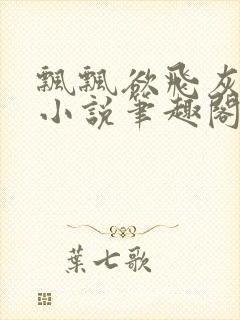 飄飄欲飛灰
小說筆趣閣
葉七歌